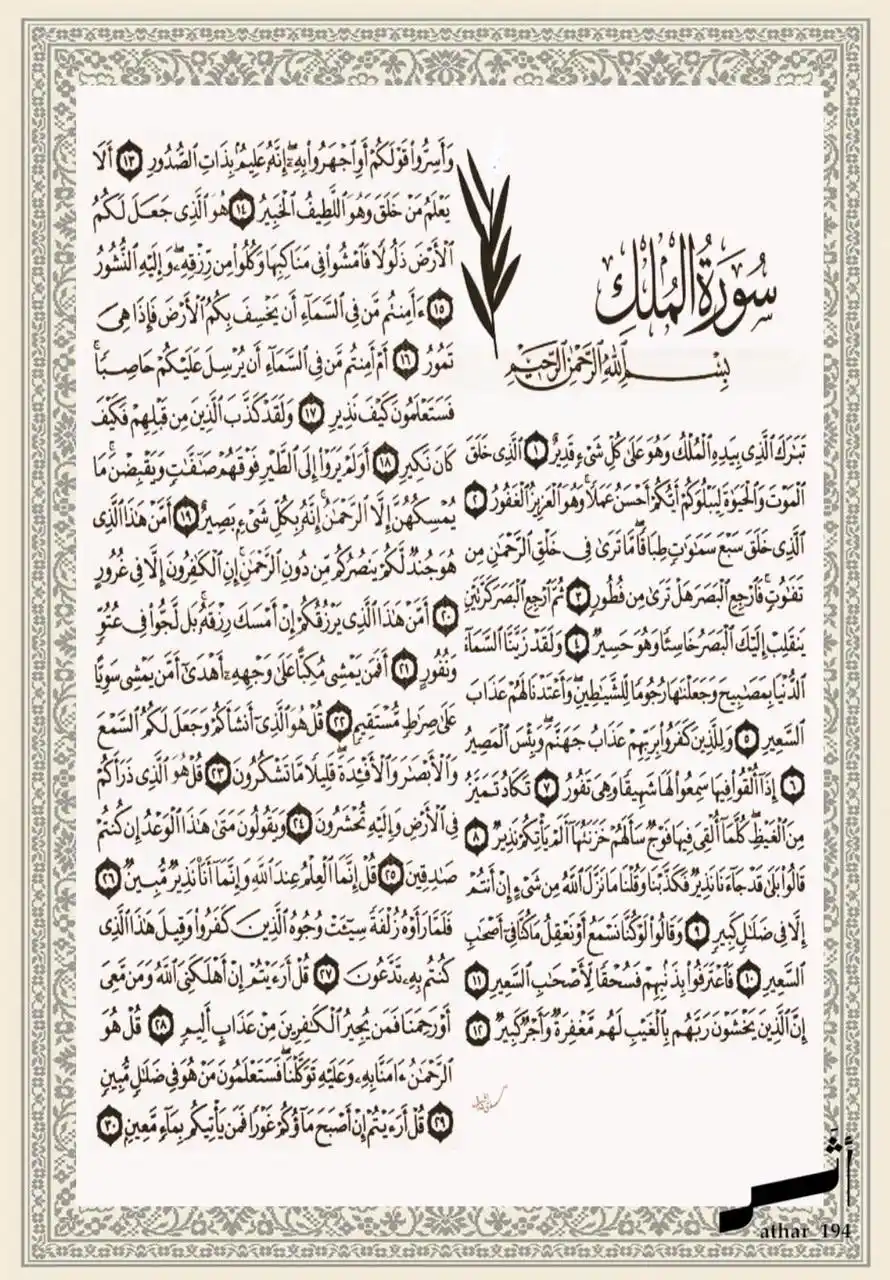 سُورَةُ الْمُلْكِ
بِسْمِ اللَّهِ الرَّحْمَٰنِ الرَّحِيمِ
تَبَٰرَكَ ٱلَّذِى بِيَدِهِ ٱلْمُلْكُ وَهُوَ عَلَىٰ كُلِّ شَىْءٍ قَدِيرٌ ١ ٱلَّذِى خَلَقَ
ٱلْمَوْتَ وَٱلْحَيَوٰةَ لِيَبْلُوَكُمْ أَيُّكُمْ أَحْسَنُ عَمَلًا ۚ وَهُوَ ٱلْعَزِيزُ ٱلْغَفُورُ ٢
ٱلَّذِى خَلَقَ سَبْعَ سَمَٰوَٰتٍ طِبَاقًا ۖ مَّا تَرَىٰ فِى خَلْقِ ٱلرَّحْمَٰنِ مِن
تَفَٰوُتٍ ۖ فَٱرْجِعِ ٱلْبَصَرَ هَلْ تَرَىٰ مِن فُطُورٍ ٣ ثُمَّ ٱرْجِعِ ٱلْبَصَرَ كَرَّتَيْنِ
يَنقَلِبْ إِلَيْكَ ٱلْبَصَرُ خَاسِئًا وَهُوَ حَسِيرٌ ٤ وَلَقَدْ زَيَّنَّا ٱلسَّمَآءَ
ٱلدُّنْيَا بِمَصَٰبِيحَ وَجَعَلْنَٰهَا رُجُومًا لِّلشَّيَٰطِينِ ۖ وَأَعْتَدْنَا لَهُمْ عَذَابَ
ٱلسَّعِيرِ ٥ وَلِلَّذِينَ كَفَرُوا۟ بِرَبِّهِمْ عَذَابُ جَهَنَّمَ ۖ وَبِئْسَ ٱلْمَصِيرُ
٦ إِذَآ أُلْقُوا۟ فِيهَا سَمِعُوا۟ لَهَا شَهِيقًا وَهِىَ تَفُورُ ٧ تَكَادُ تَمَيَّزُ
مِنَ ٱلْغَيْظِ ۖ كُلَّمَآ أُلْقِىَ فِيهَا فَوْجٌ سَأَلَهُمْ خَزَنَتُهَآ أَلَمْ يَأْتِكُمْ نَذِيرٌ ٨
قَالُوا۟ بَلَىٰ قَدْ جَآءَنَا نَذِيرٌ فَكَذَّبْنَا وَقُلْنَا مَا نَزَّلَ ٱللَّهُ مِن شَىْءٍ إِنْ أَنتُمْ
إِلَّا فِى ضَلَٰلٍ كَبِيرٍ ٩ وَقَالُوا۟ لَوْ كُنَّا نَسْمَعُ أَوْ نَعْقِلُ مَا كُنَّا فِىٓ أَصْحَٰبِ
ٱلسَّعِيرِ ١٠ فَٱعْتَرَفُوا۟ بِذَنۢبِهِمْ فَسُحْقًا لِّأَصْحَٰبِ ٱلسَّعِيرِ ١١
إِنَّ ٱلَّذِينَ يَخْشَوْنَ رَبَّهُم بِٱلْغَيْبِ لَهُم مَّغْفِرَةٌ وَأَجْرٌ كَبِيرٌ ١٢
وَأَسِرُّوا۟ قَوْلَكُمْ أَوِ ٱجْهَرُوا۟ بِهِۦٓ ۖ إِنَّهُۥ عَلِيمٌۢ بِذَاتِ ٱلصُّدُورِ ١٣ أَلَا
يَعْلَمُ مَنْ خَلَقَ وَهُوَ ٱللَّطِيفُ ٱلْخَبِيرُ ١٤ هُوَ ٱلَّذِى جَعَلَ لَكُمُ
ٱلْأَرْضَ ذَلُولًا فَٱمْشُوا۟ فِى مَنَاكِبِهَا وَكُلُوا۟ مِن رِّزْقِهِۦ ۖ وَإِلَيْهِ ٱلنُّشُورُ
١٥ ءَأَمِنتُم مَّن فِى ٱلسَّمَآءِ أَن يَخْسِفَ بِكُمُ ٱلْأَرْضَ فَإِذَا هِىَ
تَمُورُ ١٦ أَمْ أَمِنتُم مَّن فِى ٱلسَّمَآءِ أَن يُرْسِلَ عَلَيْكُمْ حَاصِبًا ۖ
فَسَتَعْلَمُونَ كَيْفَ نَذِيرِ ١٧ وَلَقَدْ كَذَّبَ ٱلَّذِينَ مِن قَبْلِهِمْ فَكَيْفَ
كَانَ نَكِيرِ ١٨ أَوَلَمْ يَرَوْا۟ إِلَى ٱلطَّيْرِ فَوْقَهُمْ صَٰٓفَّٰتٍ وَيَقْبِضْنَ ۚ مَا
يُمْسِكُهُنَّ إِلَّا ٱلرَّحْمَٰنُ ۚ إِنَّهُۥ بِكُلِّ شَىْءٍۭ بَصِيرٌ ١٩ أَمَّنْ هَٰذَا ٱلَّذِى
هُوَ جُندٌ لَّكُمْ يَنصُرُكُم مِّن دُونِ ٱلرَّحْمَٰنِ ۚ إِنِ ٱلْكَٰفِرُونَ إِلَّا فِى غُرُورٍ
٢٠ أَمَّنْ هَٰذَا ٱلَّذِى يَرْزُقُكُمْ إِنْ أَمْسَكَ رِزْقَهُۥ ۚ بَل لَّجُّوا۟ فِى عُتُوٍّ
وَنُفُورٍ ٢١ أَفَمَن يَمْشِى مُكِبًّا عَلَىٰ وَجْهِهِۦٓ أَهْدَىٰٓ أَمَّن يَمْشِى سَوِيًّا
عَلَىٰ صِرَٰطٍ مُّسْتَقِيمٍ ٢٢ قُلْ هُوَ ٱلَّذِىٓ أَنشَأَكُمْ وَجَعَلَ لَكُمُ ٱلسَّمْعَ
وَٱلْأَبْصَٰرَ وَٱلْأَفْـِٔدَةَ ۖ قَلِيلًا مَّا تَشْكُرُونَ ٢٣ قُلْ هُوَ ٱلَّذِى ذَرَأَكُمْ
فِى ٱلْأَرْضِ وَإِلَيْهِ تُحْشَرُونَ ٢٤ وَيَقُولُونَ مَتَىٰ هَٰذَا ٱلْوَعْدُ إِن كُنتُمْ
صَٰدِقِينَ ٢٥ قُلْ إِنَّمَا ٱلْعِلْمُ عِندَ ٱللَّهِ وَإِنَّمَآ أَنَا۠ نَذِيرٌ مُّبِينٌ ٢٦
فَلَمَّا رَأَوْهُ زُلْفَةً سِيٓـَٔتْ وُجُوهُ ٱلَّذِينَ كَفَرُوا۟ وَقِيلَ هَٰذَا ٱلَّذِى
كُنتُم بِهِۦ تَدَّعُونَ ٢٧ قُلْ أَرَءَيْتُمْ إِنْ أَهْلَكَنِىَ ٱللَّهُ وَمَن مَّعِىَ
أَوْ رَحِمَنَا فَمَن يُجِيرُ ٱلْكَٰفِرِينَ مِنْ عَذَابٍ أَلِيمٍ ٢٨ قُلْ هُوَ
ٱلرَّحْمَٰنُ ءَامَنَّا بِهِۦ وَعَلَيْهِ تَوَكَّلْنَا ۖ فَسَتَعْلَمُونَ مَنْ هُوَ فِى ضَلَٰلٍ مُّبِينٍ
٢٩ قُلْ أَرَءَيْتُمْ إِنْ أَصْبَحَ مَآؤُكُمْ غَوْرًا فَمَن يَأْتِيكُم بِمَآءٍ مَّعِينٍۭ ٣٠
أثر
athar_194